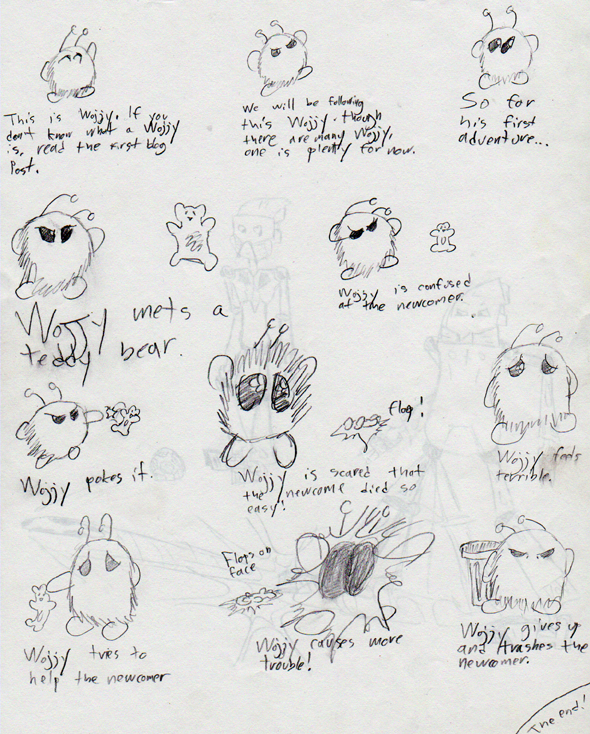 This is Wojjy. If you
don't know what a Wojjy
is, read the first blog
Post.
We will be following
this Wojjy, though
there are many Wojjy,
one is plenty for now.
So for
his first
adventure...
Wojjy mets a
teddy bear.
Wojjy is confused
at the newcomer.
Wojjy pokes it.
Flop!
Wojjy is scared that
the newcome died so
easy!
Wojjy feels
terrible.
Wojjy tries to
help the newcomer
Flops on
face
Wojjy causes more
trouble!
Wojjy gives up
and trashes the
newcomer.
The end!